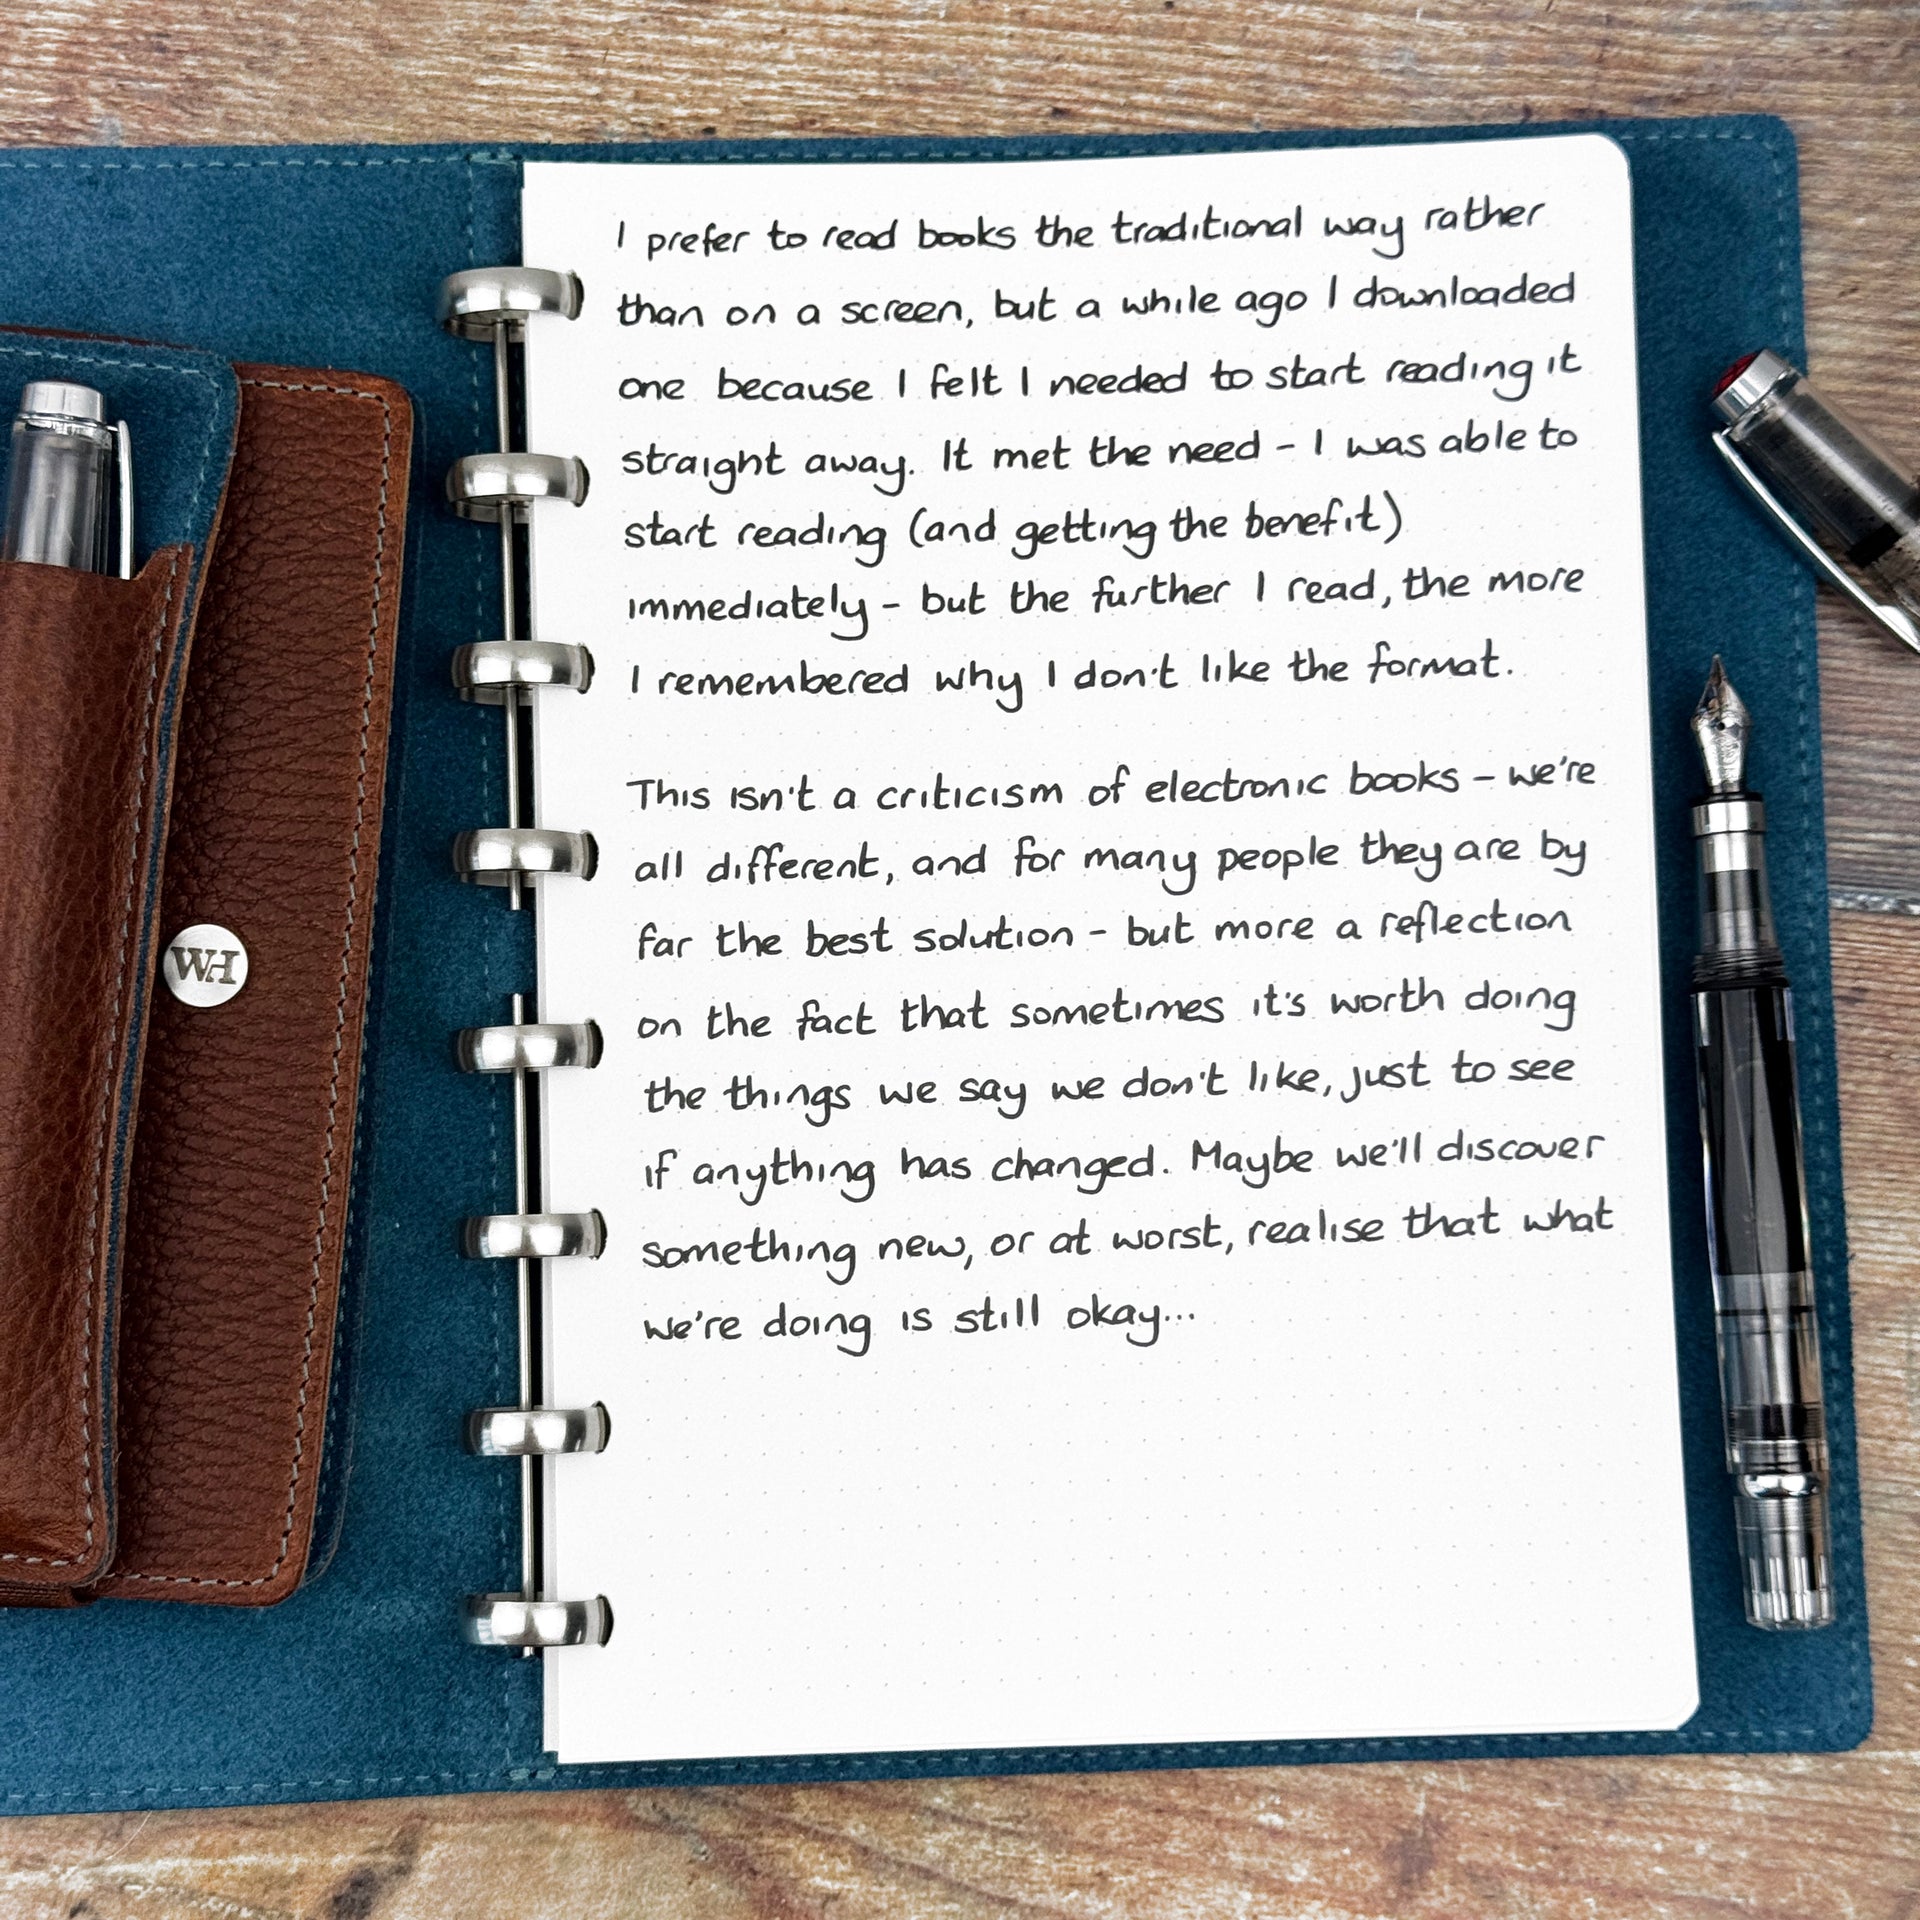 I prefer to read books the traditional way rather
than on a screen, but a while ago I downloaded
one because I felt I needed to start reading it
straight away. It met the need - I was able to
start reading (and getting the benefit)
immediately - but the further I read, the more
I remembered why I don't like the format.
This isn't a criticism of electronic books - we're
all different, and for many people they are by
far the best solution - but more a reflection
on the fact that sometimes it's worth doing
the things we say we don't like, just to see
if anything has changed. Maybe we'll discover
something new, or at worst, realise that what
we're doing is still okay...
WH